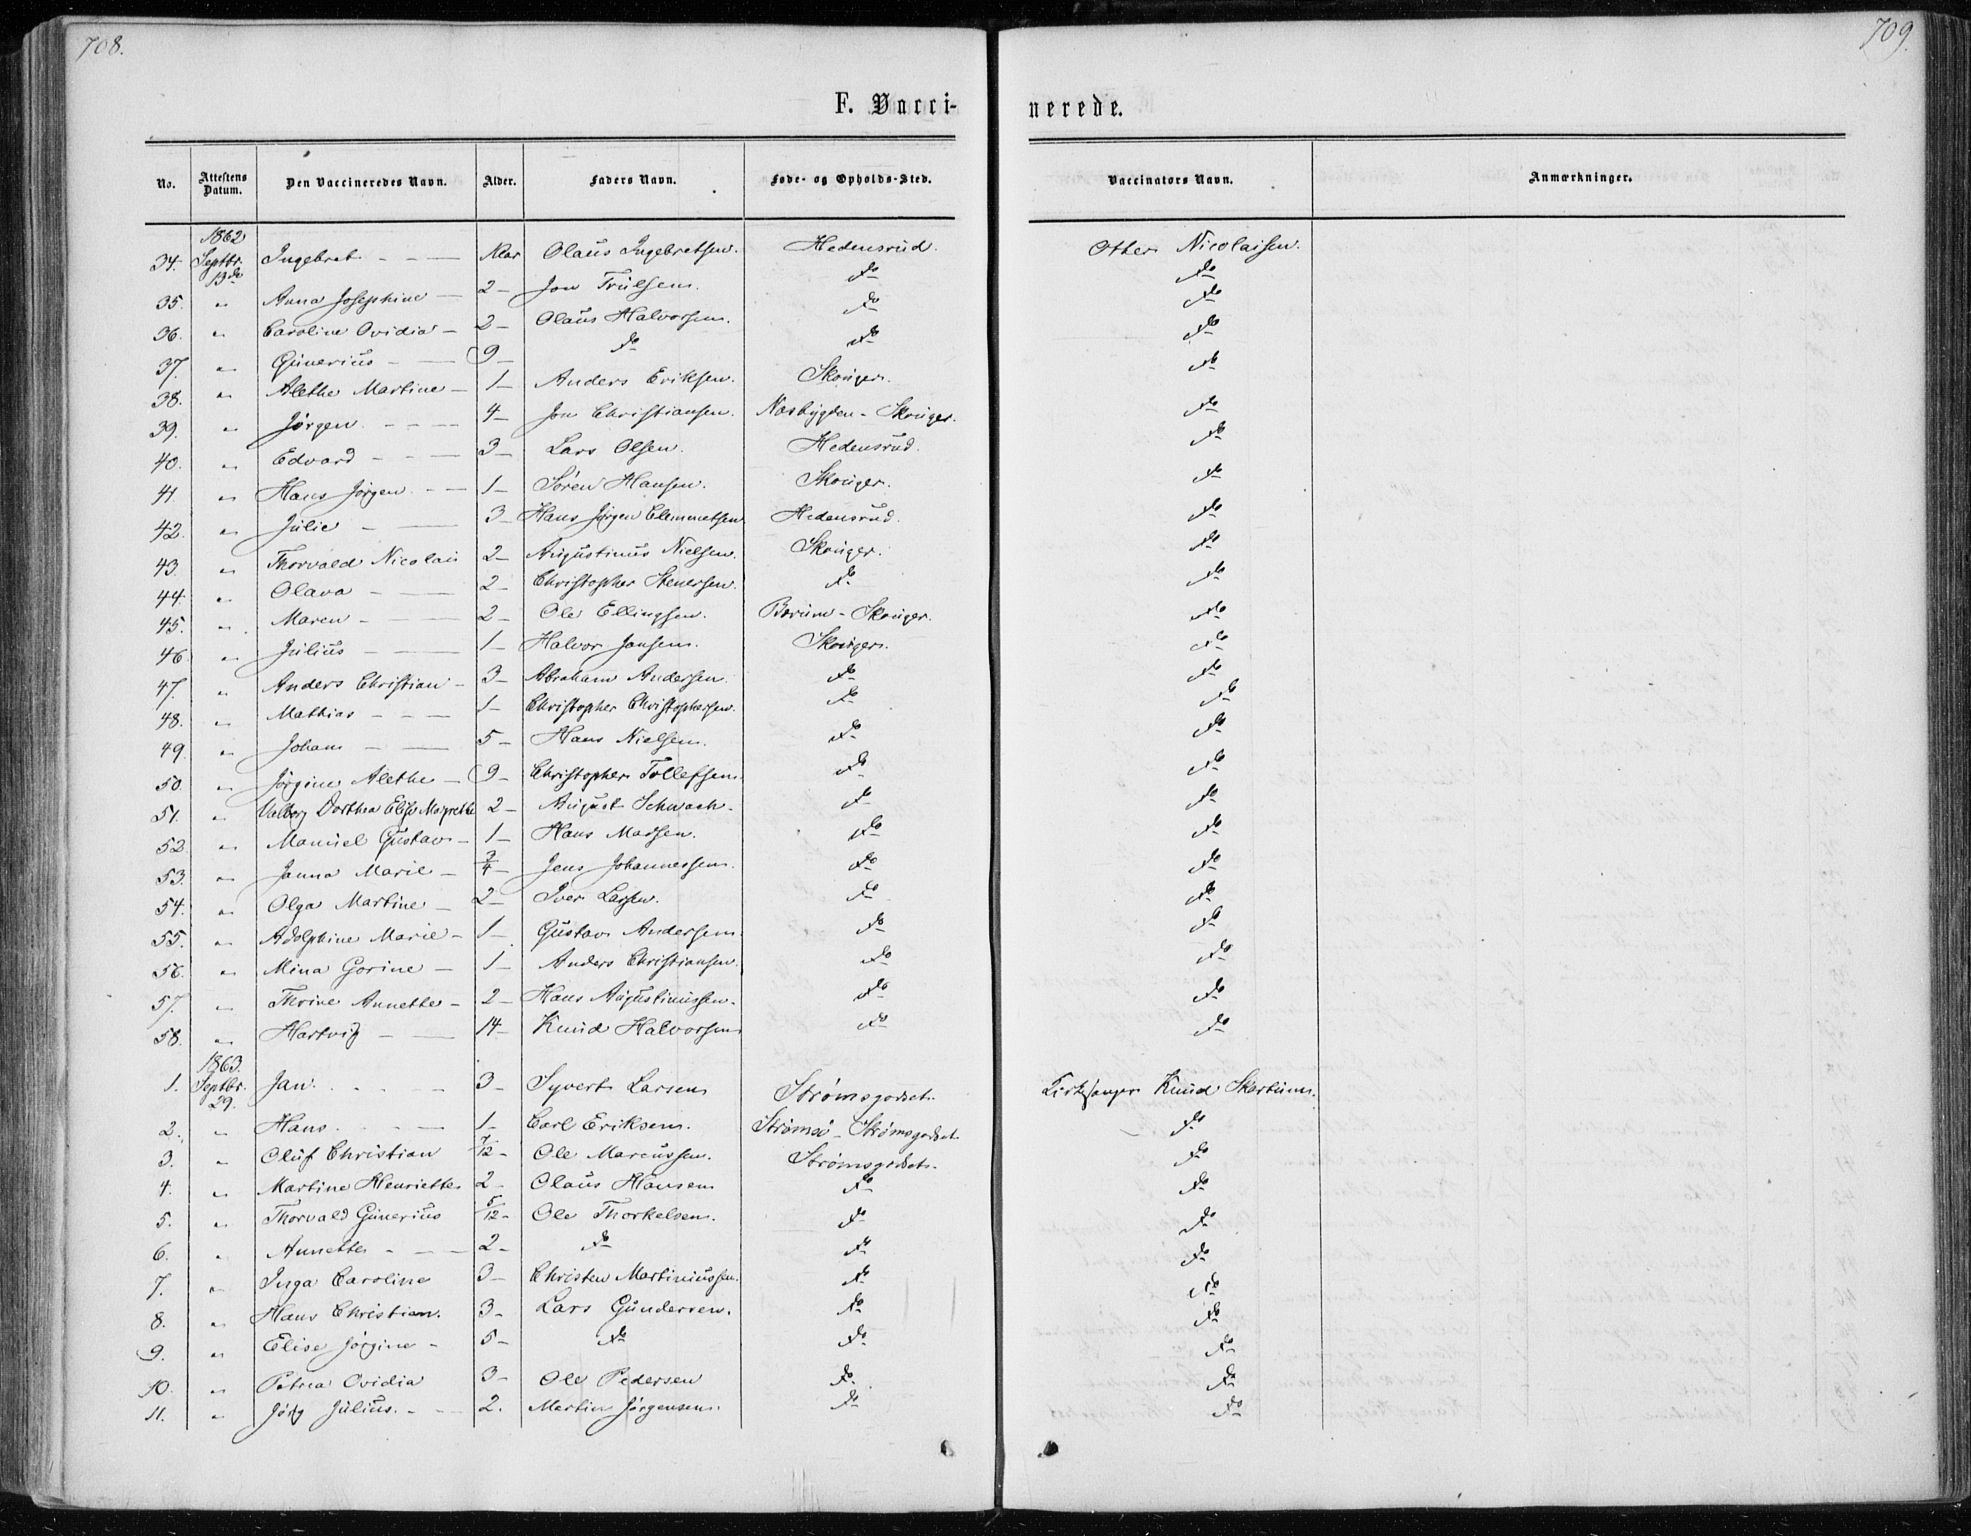 708.
709.
F. Vacci-
nerede.
No. Attestens Datum. Den Vaccineredes Navn. Alder. Faders Navn. Føde- og Opholds-Sted. Vaccinators Navn. Anmærkninger.
1862
34. Septbr. 13de Ingebret - - — Olaus Ingebretsen. Hedensrud. Other Nicolaisen.
35. " Anna Josephine — 2 - Jon Trulsen. do do
36. " Caroline Ovidia - 2 - Olaus Halvorsen. do do
37. " Gunerius - — 9 - do do do
38. " Alethe Martine - 1 - Anders Eriksen. Skouger. do
39. " Jørgen - - - — 4 - Jon Christiansen. Næsbygden - Skouger. do
40. " Edvard - - — 3 - Lars Olsen. Hedensrud. do
41 " Hans Jørgen - — 1 - Søren Hansen. Skouger. do
42. " Julie - — 3 - Hans Jørgen Clemmetsen Hedensrud. do
43. " Thorvald Nicolai 2 - Augustinus Nielsen. Skouger. do
44. " Olava - — 2 - Christopher Stenersen. do do
45. " Maren - - — 2 - Ole Ellingsen. Børum - Skouger. do
46. " Julius - — 1 - Halvor Jansen. Skouger. do
47. " Anders Christian - 3 - Abraham Andersen. do do
48. " Mathias - - — 1 - Christopher Christophersen. do do
49. " Johan - — 5 - Hans Nielsen. do do
50. " Jørgine Alethe - 9 - Christopher Tollefsen. do do
51. " Valborg Dorthea Elise Margrethe 2 - August Schwach. do do
52. " Manuel Gustav - 1 - Hans Madsen. do do
53. " Janna Marie - 3/4 - Jens Johannessen. do do
54. " Olga Martine - 2 - Iver Larsen. do do
55. " Adolphine Marie - 1 - Gustav Andersen. do do
56. " Mina Gorine - 1 - Anders Christiansen. do do
57. " Thrine Annette - 2 - Hans Augustinussen. do do
58. " Hartvig - — 14 - Knud Halvorsen do do
1863.
1. Septbr. 29. Jan. - - - 3 - Syvert Larsen Strømsgodset. Kirkesanger Knud Skartum.
2. " Hans. - - — 1 - Carl Eriksen. Strømsø - Strømsgodset do
3. " Oluf Christian 7/12 - Ole Marcussen. Strømsgodset. do
4. " Martine Henriette 2 - Olaus Hansen do do
5. " Thorvald Gunerius 5/12 - Ole Thorkelsen. do do
6. " Annette - - — 2 - do do do
7. " Inga Caroline 3 - Christen Martiniussen. do do
8. " Hans Christian. 3 - Lars Gundersen. do do
9. " Elise Jørgine - 5 - do do do
10. " Petrea Ovidia 3 - Ole Pedersen do do
11. " Julius. - - 2. Martin Jørgensen. do do